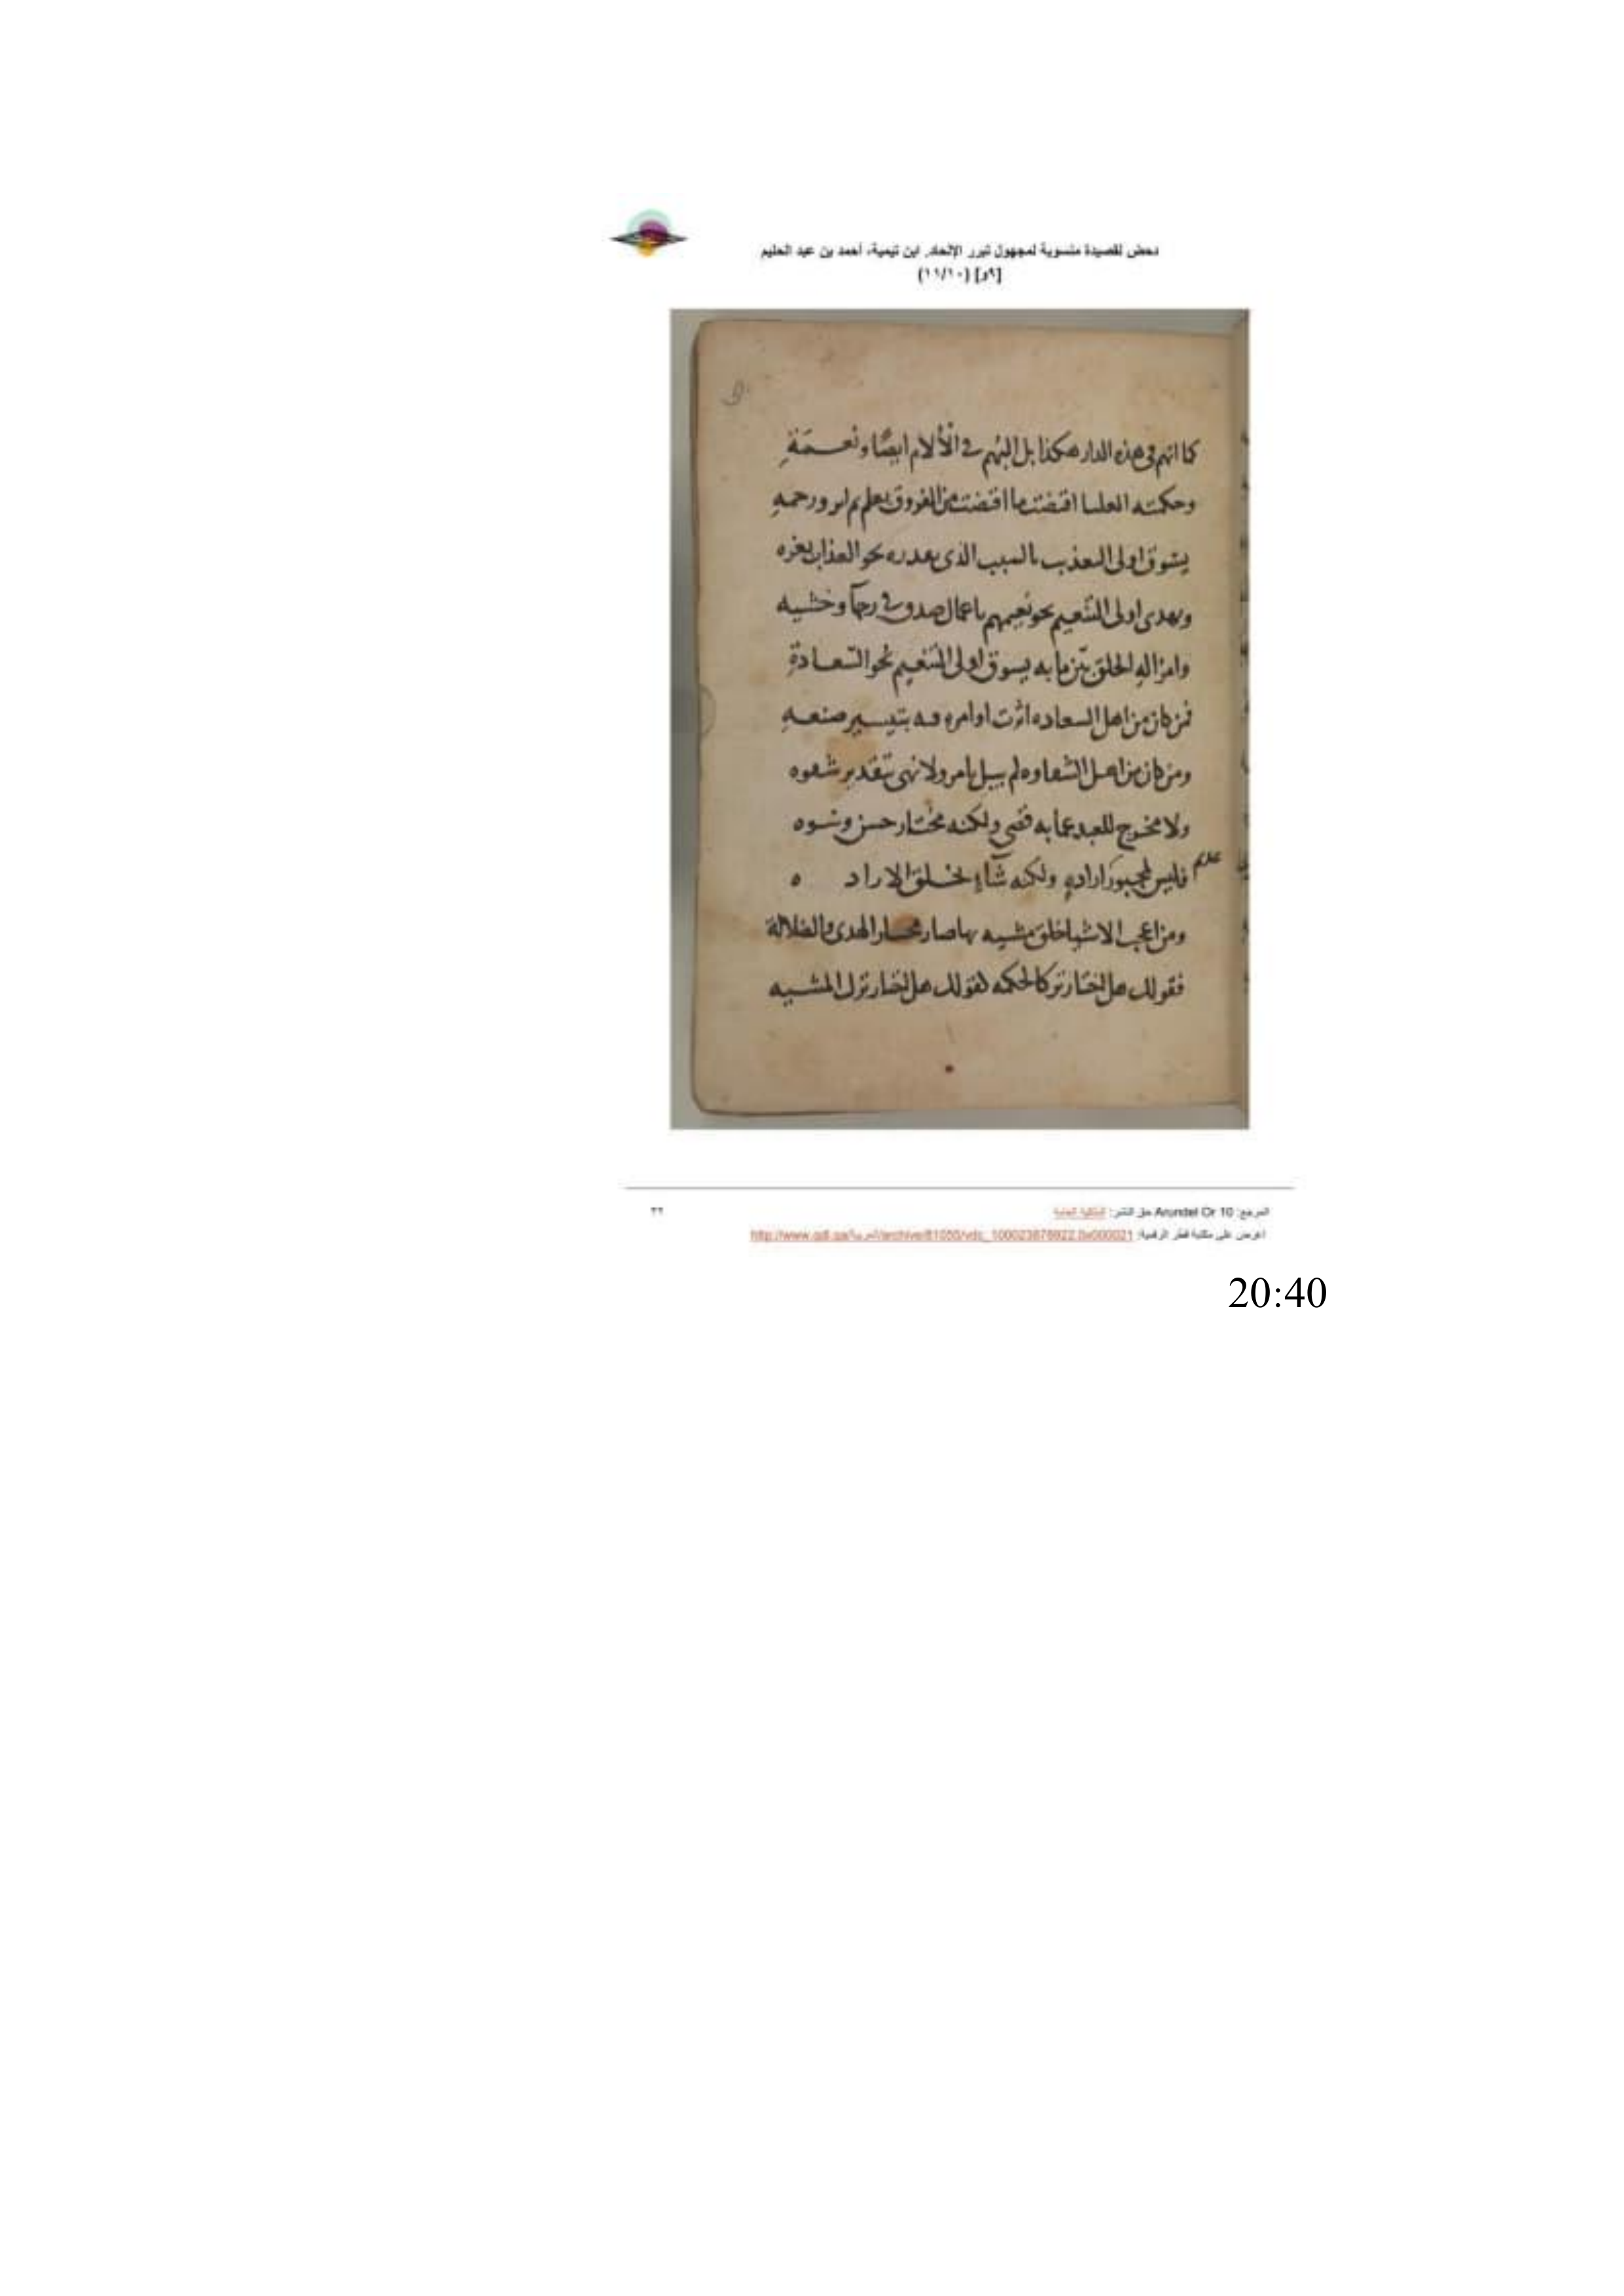 دحض لقصيدة منسوبة لمجهول تبرر الإلحاد. ابن تيمية، أحمد بن عبد الحليم
[٩و] (١١/١٠)
9
كما انهم فى هذه الدار هكذا بل البهم فى الألام ايضًا ونعمَةِ
وحكمته العليا اقتضت ما اقتضت من الفروق بعلم ثم ورحمه
يسوق اولى التعذيب بالسبب الذى يقدره نحو العذاب بعزه
ويهدى اولى التنعيم نحو نعيمهم باعمال صدق فى رجآ وخشيه
وامر اله الخلق بيّن ما به يسوق اولى التنعيم نحو السّعادةِ
فمن كان من اهل السعاده اثرت اوامره فيه بتيسير صنعهِ
ومن كان من اهل الشقاوه لم يبل بامر ولا نهى بتقدير شقوه
ولا مخرج للعبد عما به قضى ولكنه مختار حسن وسوه
فليس بمجبور ارادهٍ ولكنه شآءٍ بخلق الاراد ه
ومن اعجب الاشيا خلق مشيه بها صار مختار الهدى والضلالة
فقولك هل اختار تركا لحكمه كقولك هل اختار ترك المشيه
المرجع: Arundel Or 10 حق النشر: الملكية العامة
٢٢
اعرض على مكتبة قطر الرقمية:
20:40